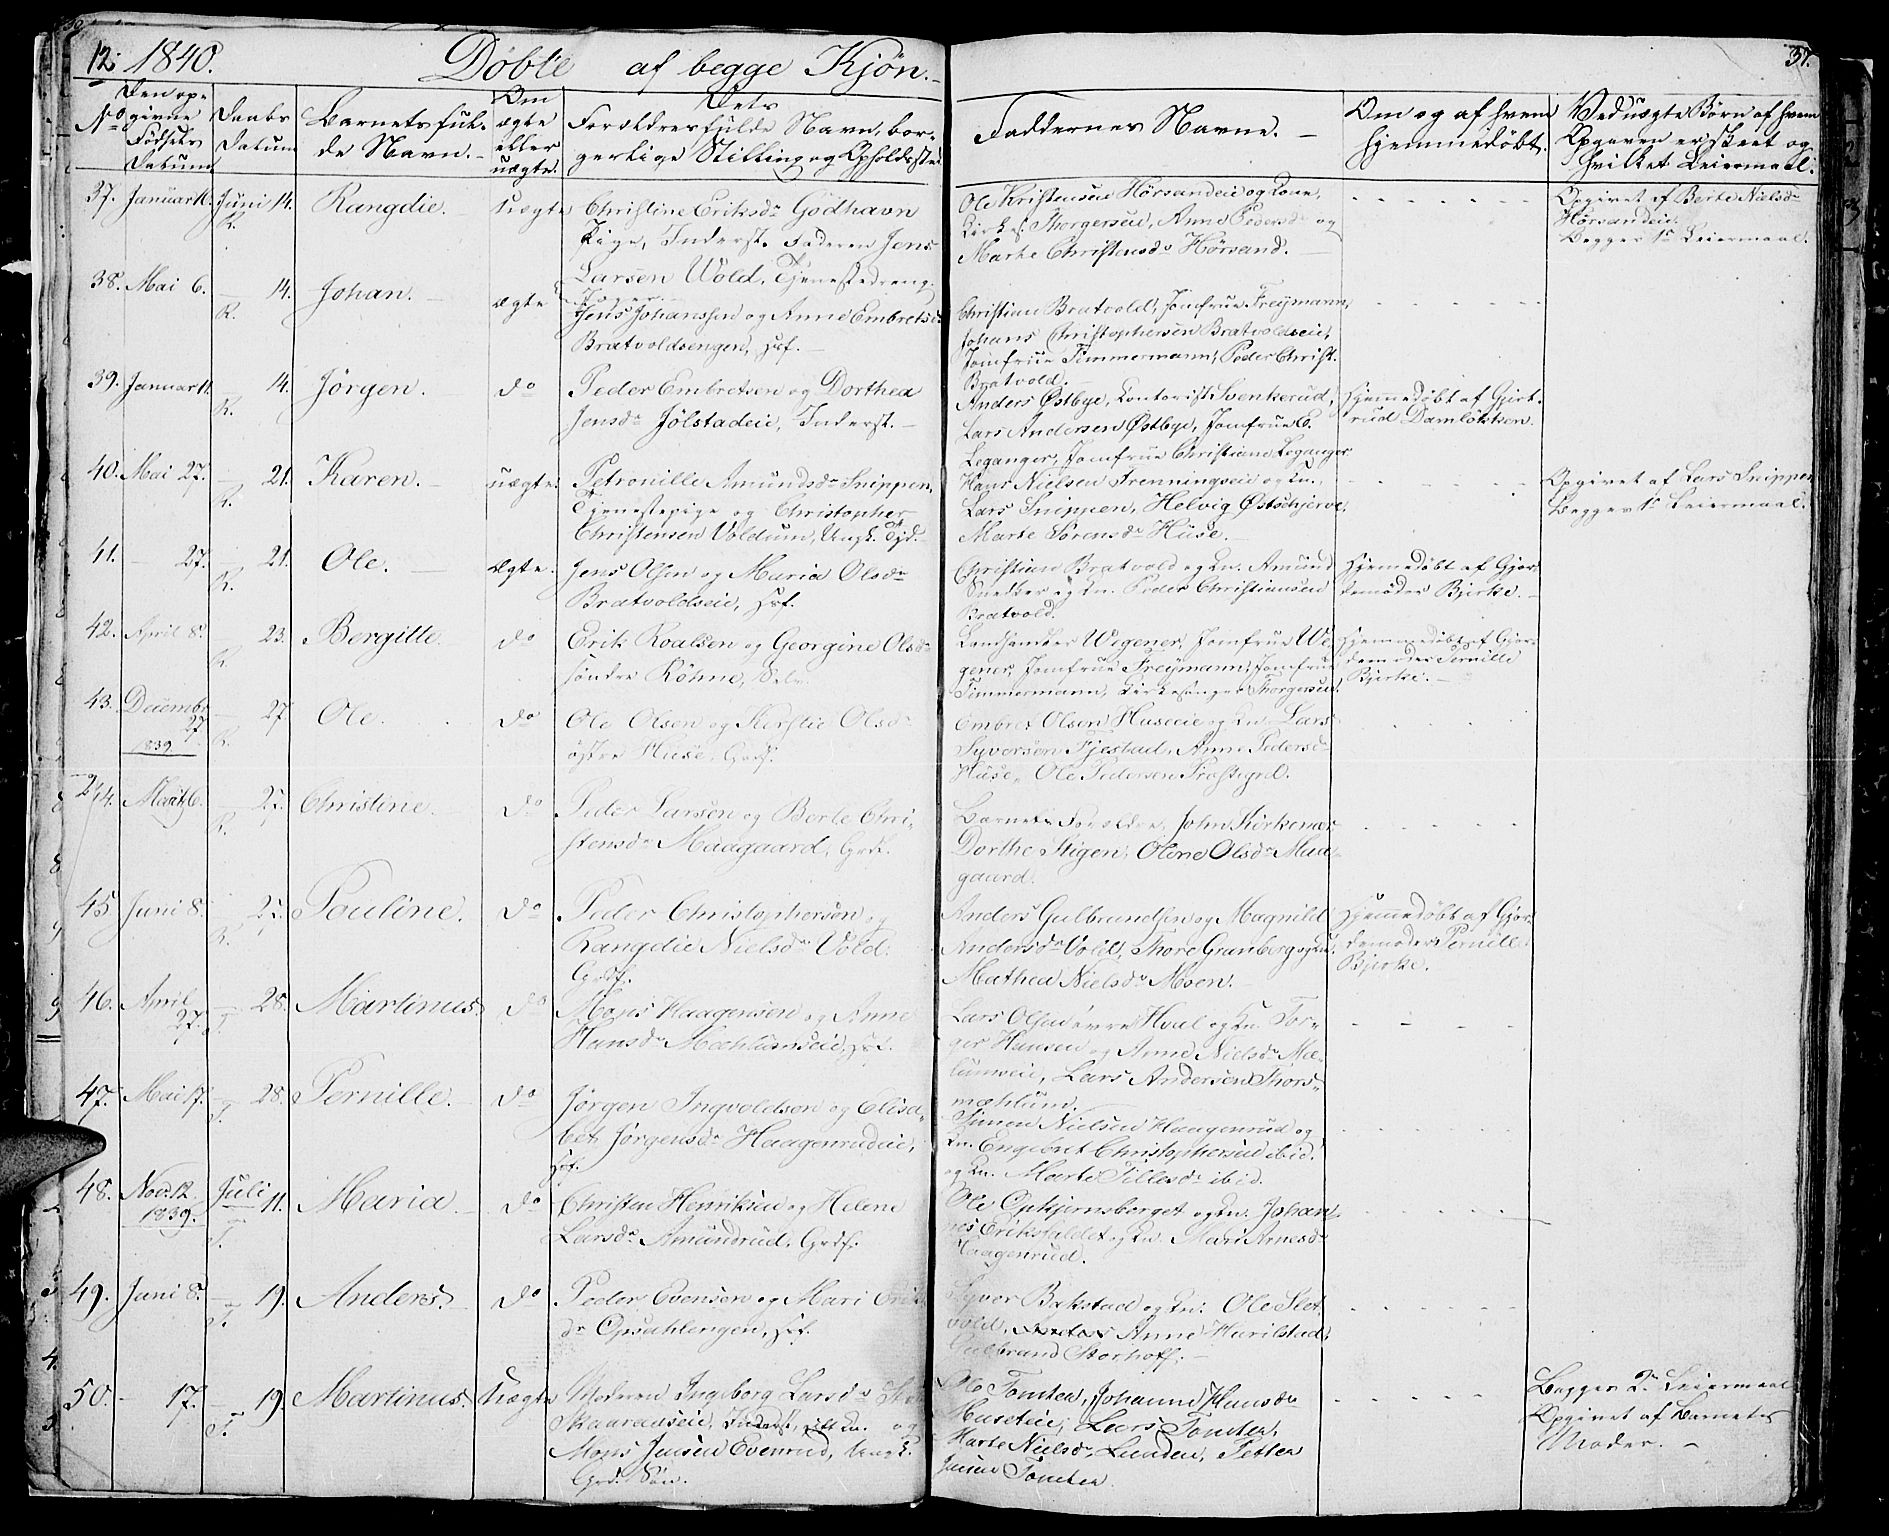 12. 1840. Døbte af begge Kjøn. 37.
No Den opgivne Fødsels Datum Daabs Datum Barnets fulde Navn. Om ægte eller uægte. Dets Forældres fulde Navn, borgerlige Stilling og Opholdssted Faddernes Navne. Om og af hvem hjemmedøbt. Ved uægte Børn af hvem Opgaven er skeet og hvilket Leiermaal.
37. Januar Juni 14. R. Rangdie. Uægte Christine Eriksdr Godhavn
Pige, Inderst. Faderen Jens
Larsen Wold, Tjenestedreng.
Ole Kristensen Hørsandeie og Kone,
Kirkes. Thorgersen, Anne Pedersdr og
Marte Christensdr Hørsand.
Opgivet af Berte Nielsdr
Hørsandeie.
Begges 1e Leiermaal.
38. Mai 6. 14. R. Johan. ægte
Jens Johanssen og Anne Embretsdr
Bratvoldsengen, Hsf.
Christian Bratvold, Jomfrue Freymann,
Johans Christophersen Bratvoldseie,
Jomfrue Timmermann, Peder Christ.
Bratvold.
39. Januar 11. 14. R. Jørgen. do Peder Embretsen og Dorthea
Jensdr Jølstadeie, Inderst.
Anders Østbye, Kontorist Svenkerud,
Lars Andersen Østbye, Jomfrue C.
Leganger, Jomfrue Christiane Leganger
Hjemmedøbt af Gjert-
rud Damløkken.
40. Mai 27. 21. R. Karen. uægte. Petronille Amundsdr Snippen,
Tjenestepige og Christopher
Christensen Voldum, Ungk. Tjd.
Hans Nielsen Frenningseie og Kn.,
Lars Snippen, Helvig Østschjerve,
Marte Sørensdr Huse.
Opgivet af Lars Snippen
Begges 1e Leiermaal.
41. - 27. 21. R. Ole. ægte. Jens Olsen og Maria Olsdr
Bratvoldseie, Hsf.
Christian Bratvold og Kn. Amund
Snedker og Kn. Peder Christiansen
Bratvold.
Hjemmedøbt af Gjor-
demoder Bjerke.
42. April 8. 23. R. Bergitte. do Erik Roalsen og Georgine Olsdr
søndre Röhne, Selv.
Landhandler Wegener, Jomfrue We-
gener, Jomfrue Freymann, Jomfrue
Timmermann, Kirkesanger Thorgersen.
Hjemmedøbt af Gjor-
demoder Pernille
Bjerke.
43. Decembr 27. 1839. 27. R. Ole. do Ole Olsen og Kirstie Olsdr
østre Huse, Grdf.
Embret Olsen Huseeie og Kn. Lars
Syversen Fjestad, Anne Pedersdr
Huse, Ole Pedersen Præstegrd.
44. Marts 6. 25. R. Christine. do Peder Larsen og Berte Chri-
stensdr Maagaard, Grdf.
Barnets Forældre, John Kirkenær
Dorthe Stigen, Olene Olsdr Maa-
gaard.
45. Juni 8. 25. R. Pouline. do Peder Christophersen og
Rangdie Nielsdr Vold.
Grdf.
Anders Gulbrandsen og Magnild
Andersdr Vold, Thore Granberg og Kn.
Mathea Nielsdr Moen.
Hjemmedøbt af Gjor-
demoder Pernille
Bjerke.
46. April 27. 28. T. Martinus. do Mons Haagensen og Anne
Hansdr Mæhlumseie, Hsf.
Lars Olsen øvre Hval og Kn. Tor-
ger Hansen og Anne Nielsdr Mæ-
lumseie, Lars Andersen Thors-
mæhlum.
47. Mai 17. 28. T. Pernille. do Jørgen Ingvoldsen og Elisa-
bet Jørgensdr Haagenrudeie,
Hsf.
Simen Nielsen Haagenrud og
Kn. Engebret Christophersen ibid.
og Kn. Marte Tillesdr ibid.
48. Novb. 12. 1839. Juli 11. T. Maria do Christen Henriksen og Helene
Larsdr Amundrud, Grdf.
Ole Opkjernsberget og Kn. Johan-
nes Eriksfaldet og Kn. Mari Arnesdr
Haagenrud.
49. Juni 8. 19. T. Anders. do Peder Evensen og Mari Erik-
dr Opsahlengen, Hsf.
Syver Bakstad og Kn. Ole Slet-
vold, Anne Harilstad,
Gulbrand Storhoff.
50. - 17. 19. T. Martinus. Uægte Moderen Ingeborg Larsdr
Skaaradseie, Inderst, og
Mons Jensen Evenrud, Ungk.
Grd. Søn.
Ole Tomter, Johanne Hansdr
Lars Tomter,
Marte Nielsdr Lunden, Petter
Jensen Tomter.
Begges 2e Leiermaal
Opgivet af Barnets
Moder.